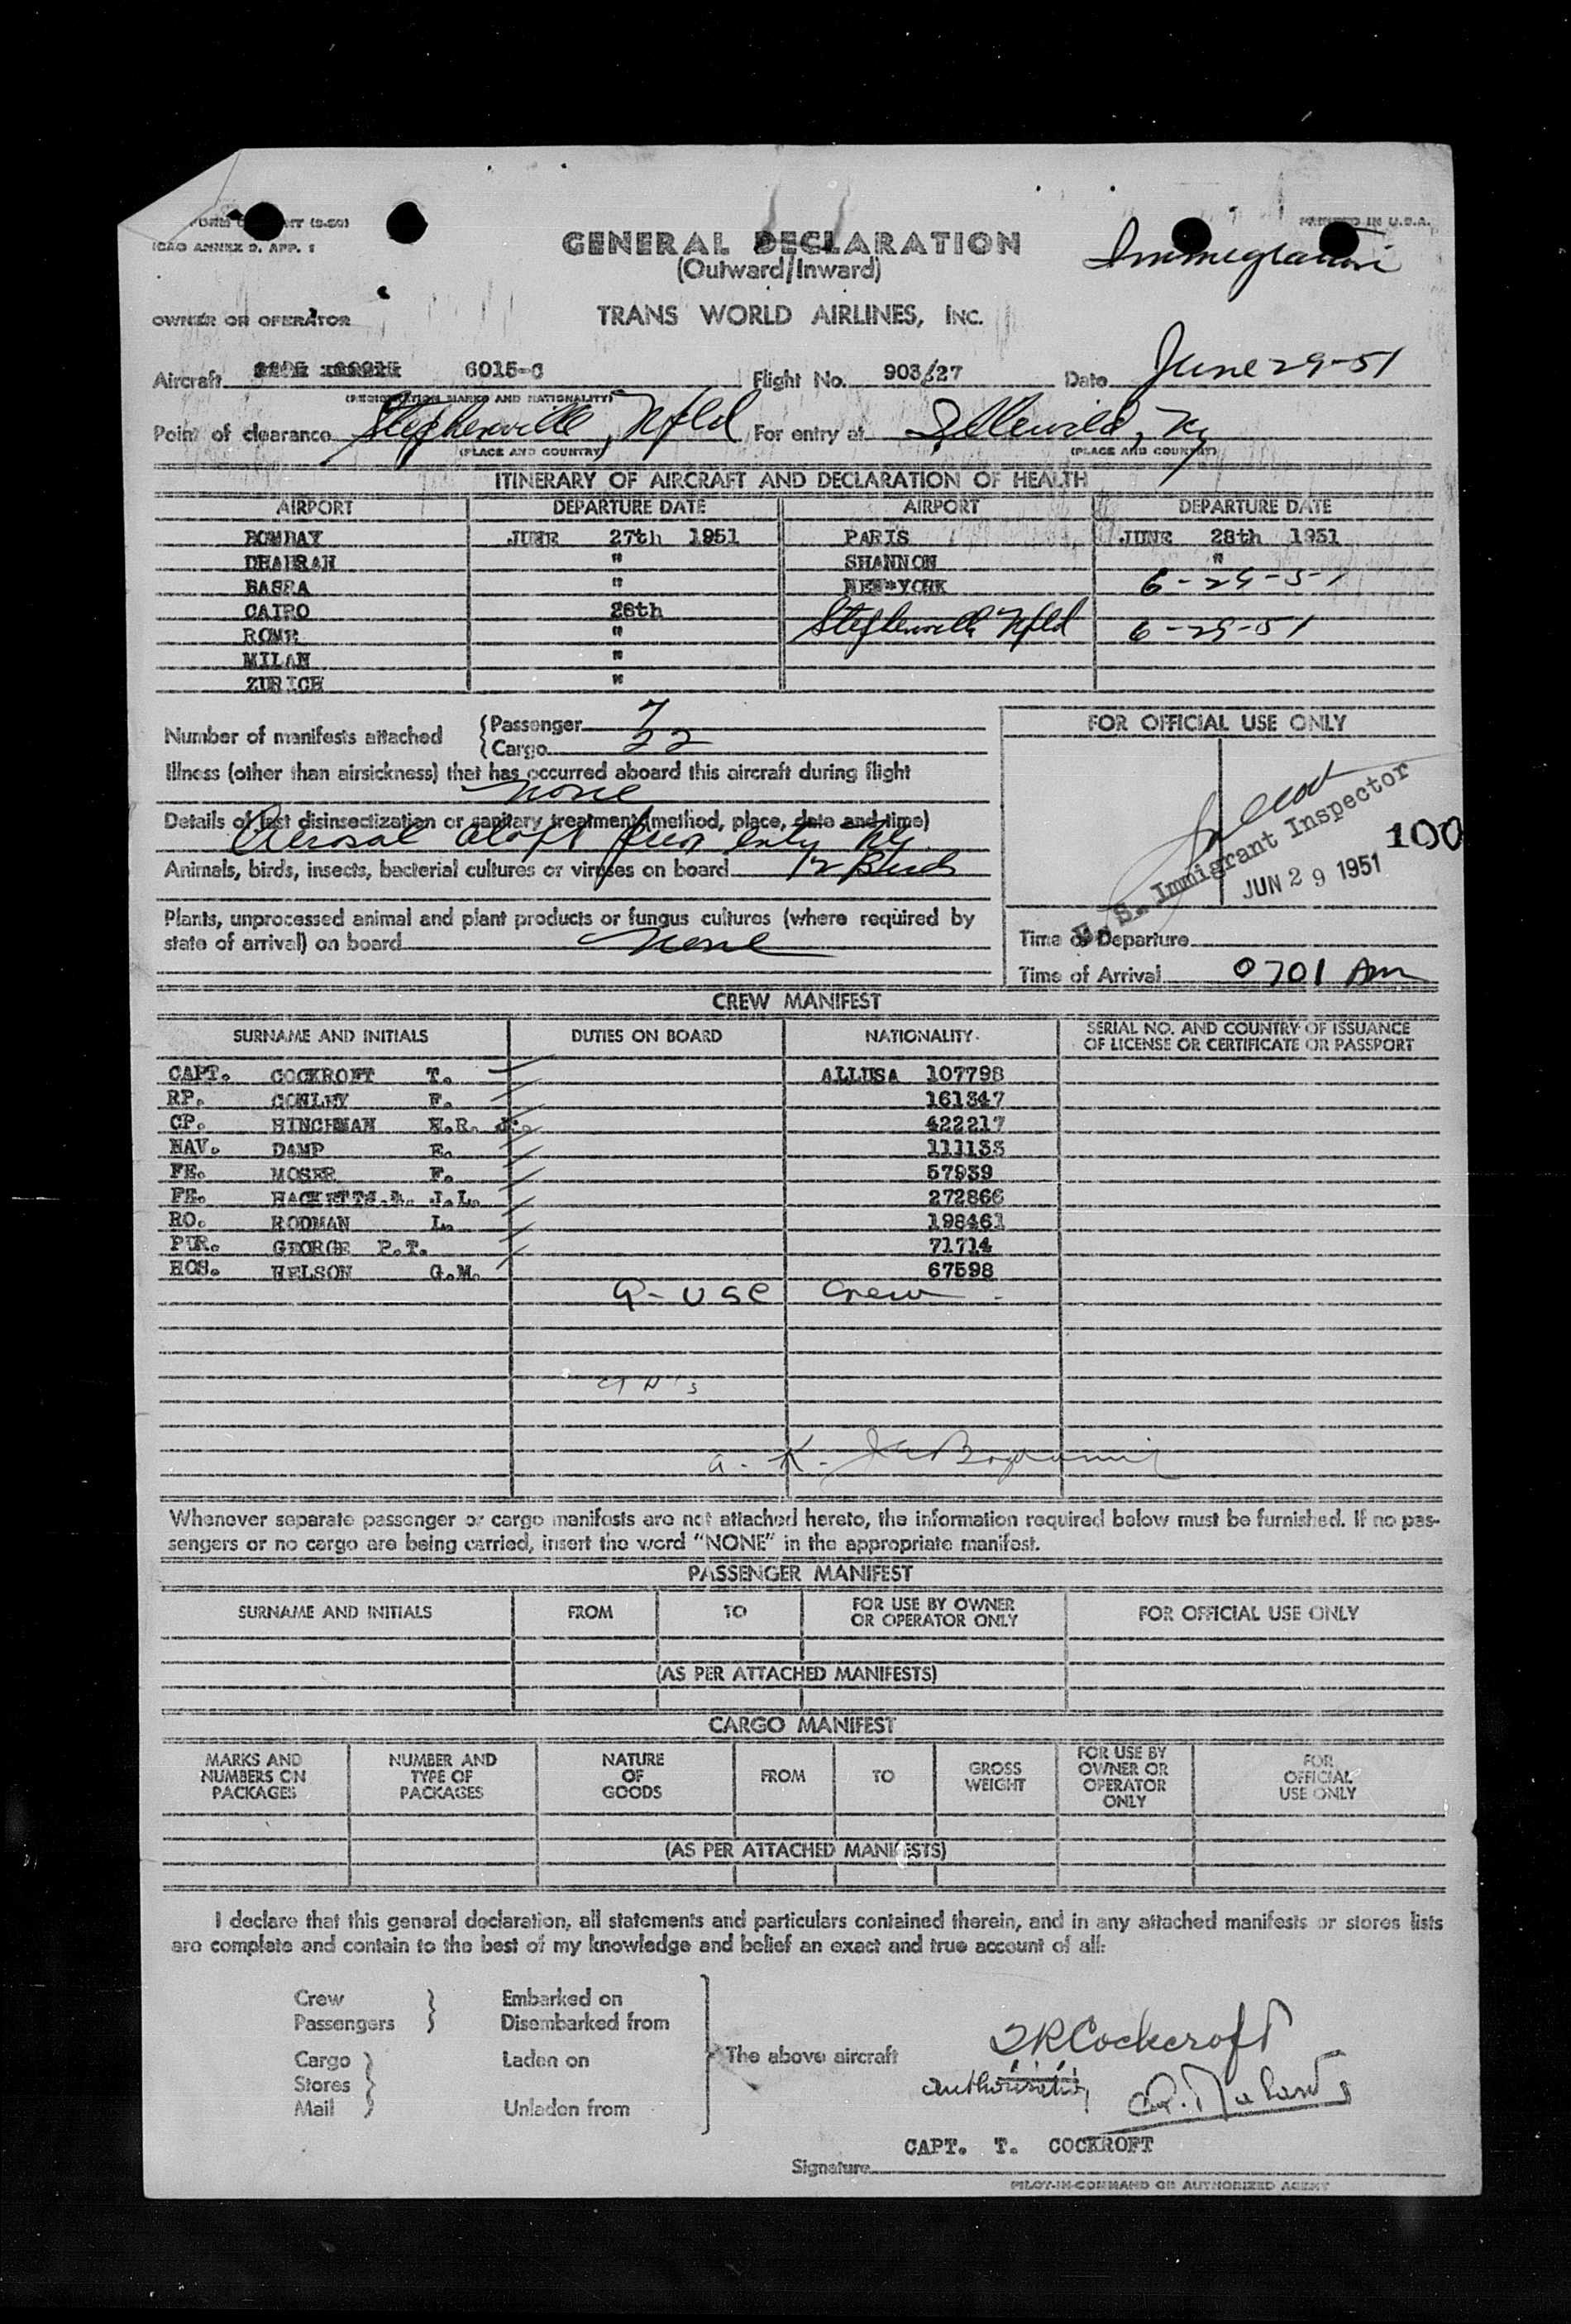 PRINTED IN U.S.A.
ICAO ANNEX 9, APP. 1
GENERAL DECLARATION
Immigration
(Outward/Inward)
OWNER OR OPERATOR TRANS WORLD AIRLINES, INC.
Aircraft 6015-C Flight No. 903/27 Date June 29-51
(REGISTRATION MARKS AND NATIONALITY)
Point of clearance Stephenville, Nfld For entry at Idlewild, Ny
(PLACE AND COUNTRY) (PLACE AND COUNTRY)
ITINERARY OF AIRCRAFT AND DECLARATION OF HEALTH
AIRPORT DEPARTURE DATE AIRPORT DEPARTURE DATE
BOMBAY JUNE 27th 1951 PARIS JUNE 28th 1951
DHAHRAN " SHANNON "
BASRA " NEW-YORK 6-29-51
CAIRO 28th
ROME " Stephenville Nfld 6-29-51
MILAN "
ZURICH "
Number of manifests attached { Passenger 7
{ Cargo 22
FOR OFFICIAL USE ONLY
Illness (other than airsickness) that has occurred aboard this aircraft during flight
None
Details of last disinsectization or sanitary treatment (method, place, date and time)
Aerosol aloft prior entry Ny.
Animals, birds, insects, bacterial cultures or viruses on board 12 Birds
Plants, unprocessed animal and plant products or fungus cultures (where required by
state of arrival) on board None
U. S. Immigrant Inspector 100
JUN 29 1951
Time of Departure
Time of Arrival 0701 Am
CREW MANIFEST
SURNAME AND INITIALS DUTIES ON BOARD NATIONALITY SERIAL NO. AND COUNTRY OF ISSUANCE
OF LICENSE OR CERTIFICATE OR PASSPORT
CAPT. COCKROFT T. ALLUSA 107798
RP. CONLEY F. 161347
CP. HINCHMAN H.R. Jr. 422217
NAV. DAMP E. 111133
FE. MOSER F. 57939
FE. J.L. 272866
RO. RODMAN L. 198461
PUR. GEORGE P.T. 71714
HOS. NELSON G.M. 67598
9- USC Crew
Whenever separate passenger or cargo manifests are not attached hereto, the information required below must be furnished. If no pas-
sengers or no cargo are being carried, insert the word "NONE" in the appropriate manifest.
PASSENGER MANIFEST
SURNAME AND INITIALS FROM TO FOR USE BY OWNER
OR OPERATOR ONLY FOR OFFICIAL USE ONLY
(AS PER ATTACHED MANIFESTS)
CARGO MANIFEST
MARKS AND
NUMBERS ON
PACKAGES
NUMBER AND
TYPE OF
PACKAGES
NATURE
OF
GOODS
FROM
TO
GROSS
WEIGHT
FOR USE BY
OWNER OR
OPERATOR
ONLY
FOR
OFFICIAL
USE ONLY
(AS PER ATTACHED MANIFESTS)
I declare that this general declaration, all statements and particulars contained therein, and in any attached manifests or stores lists
are complete and contain to the best of my knowledge and belief an exact and true account of all:
Crew } Embarked on
Passengers } Disembarked from
Cargo } Laden on
Stores }
Mail } Unladen from
The above aircraft
TR Cockcroft
CAPT. T. COCKROFT
Signature
PILOT-IN-COMMAND OR AUTHORIZED AGENT